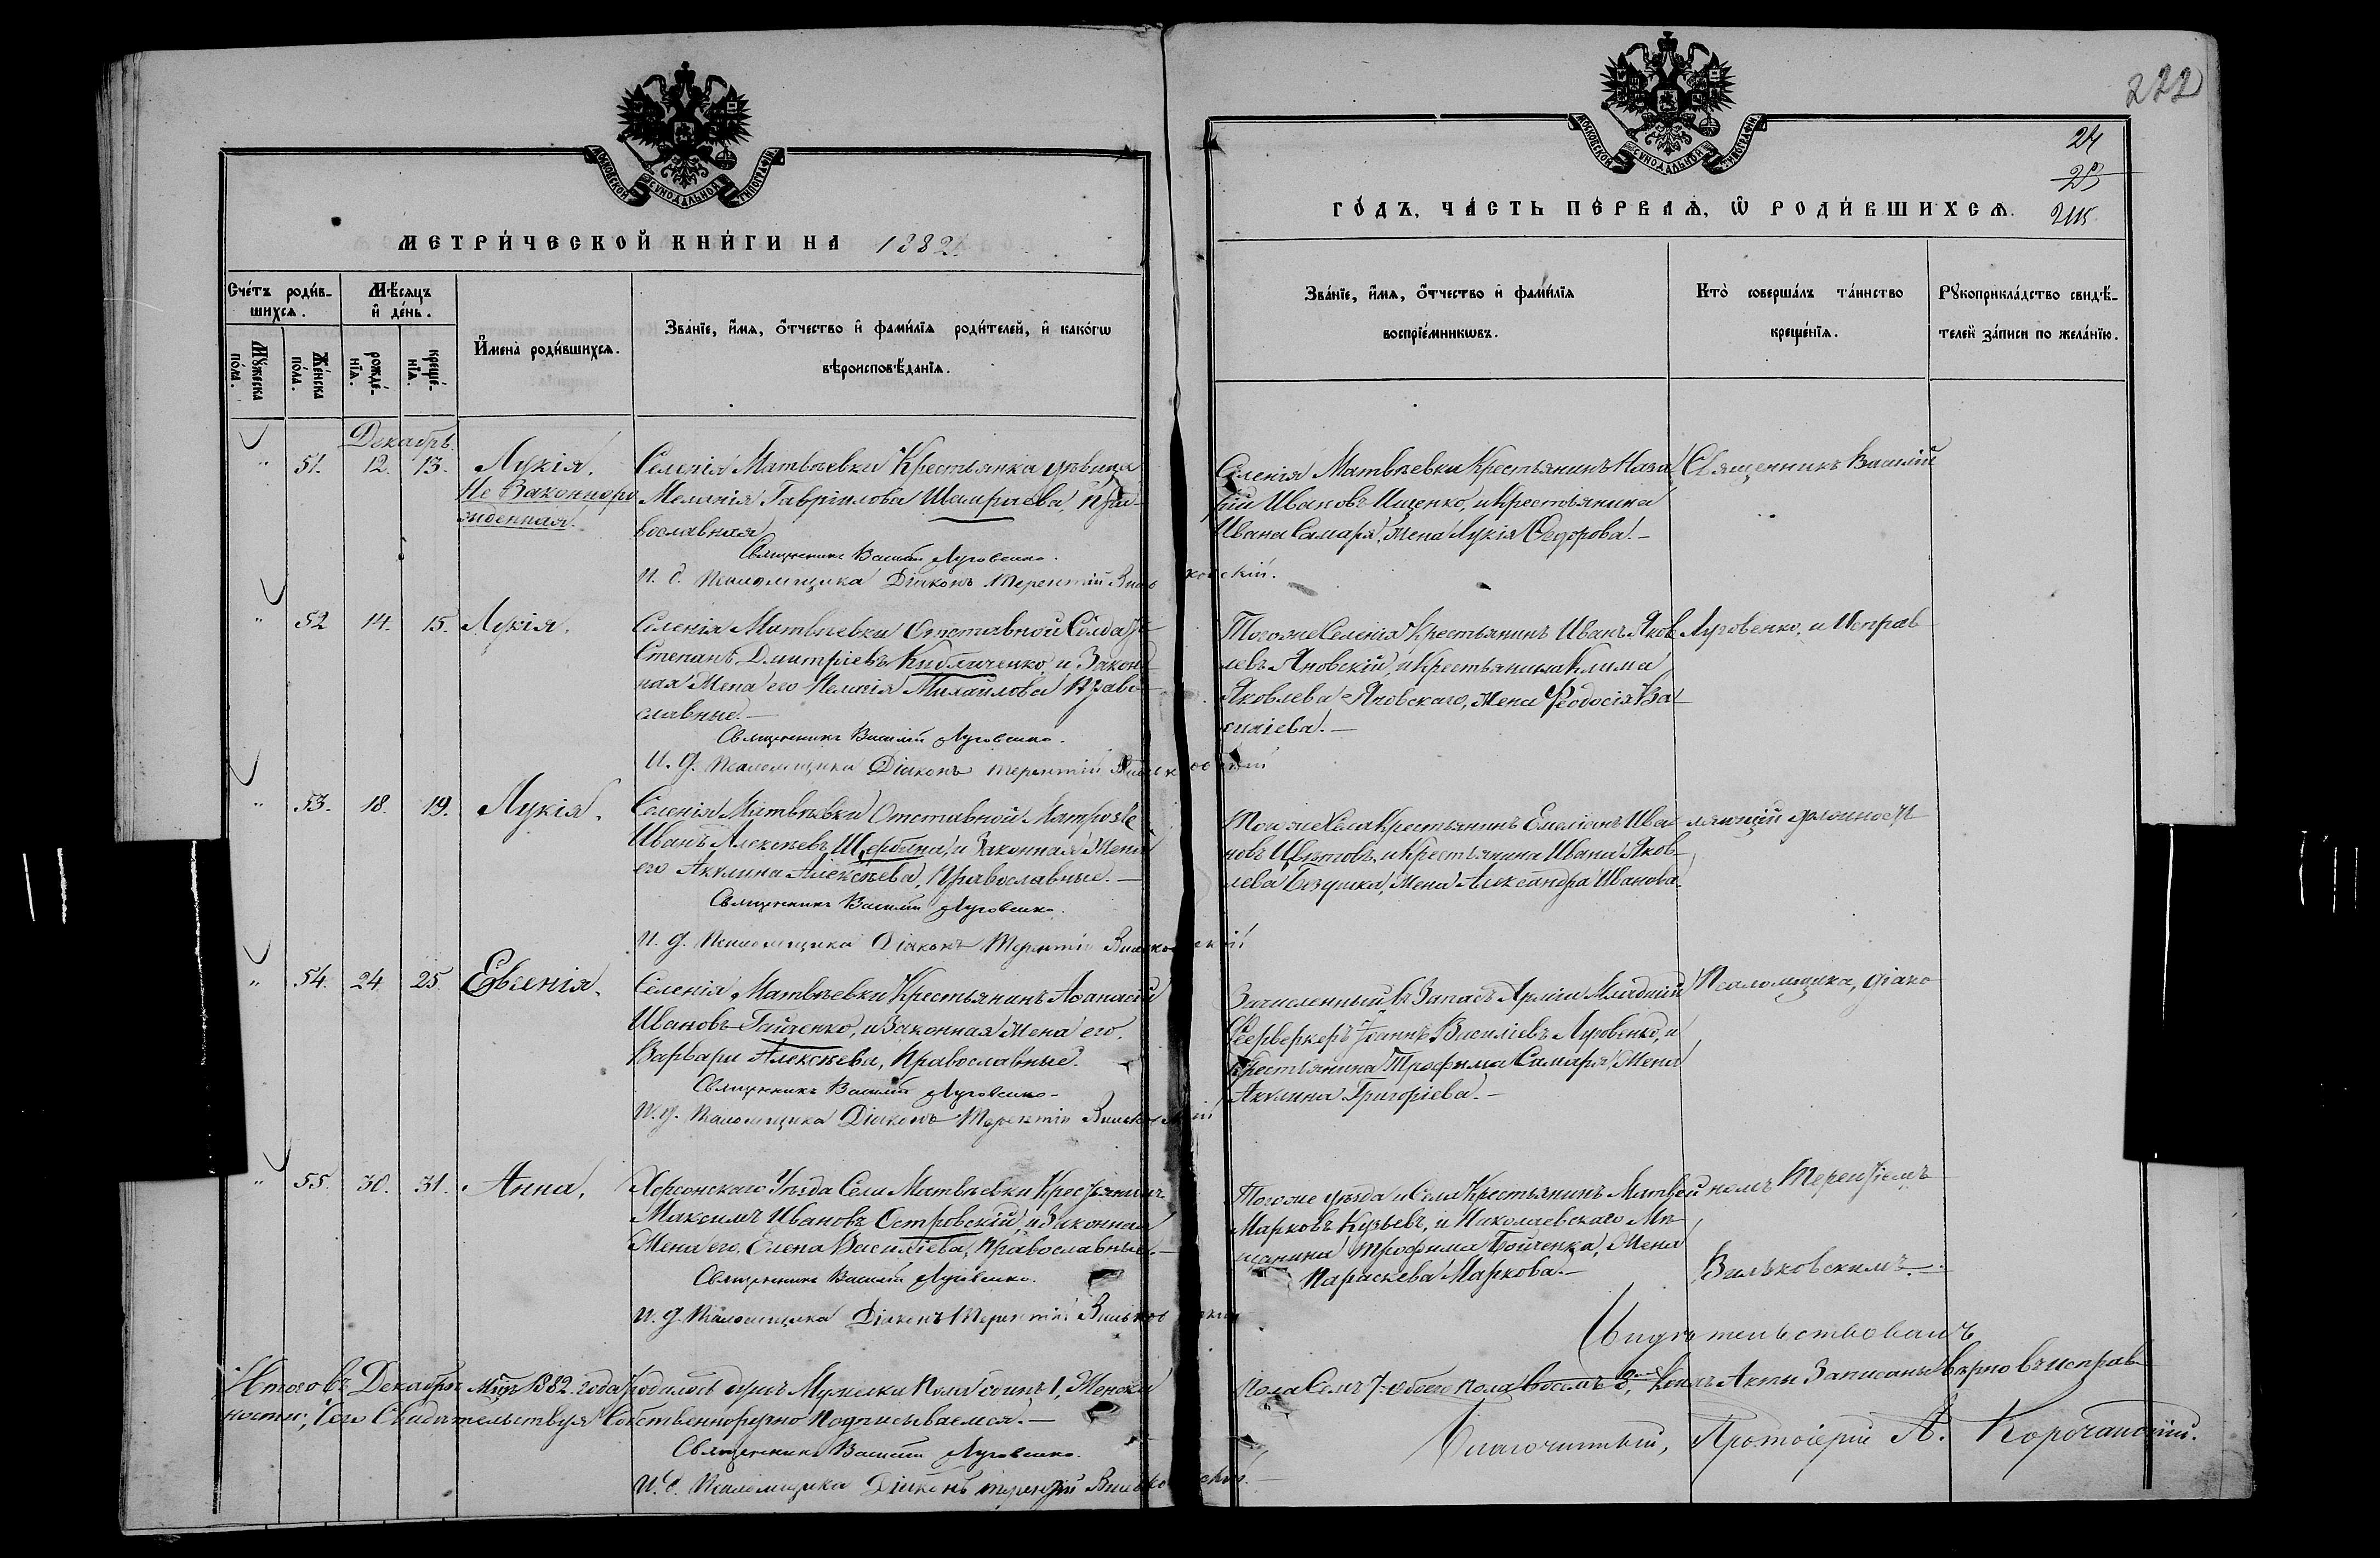 МОСКОВСКОЙ СѴНОДАЛЬНОЙ ТИПОГРАФІИ
МЕТРИ́ЧЕСКОЙ КНИ́ГИ НА 1882
Сче́тъ роди́в-
шихсѧ.
Мѣ́сѧцъ
и҆ де́нь.
Мꙋ́жеска
по́ла.
Же́нска
по́ла.
рожде́-
нїѧ.
креще́-
нїѧ.
И҆мена̀ роди́вшихсѧ.
Зва́нїе, и҆́мѧ, ѻ҆́тчество и҆ фами́лїѧ роди́телей, и҆ како́гѡ
вѣроисповѣ́данїѧ.
Декабрь.
" 51. 12. 13. Лукія.
Не Законноро
жденная.
Селенія Матвѣевки Крестьянка дѣвица
Меланія Гавріилова Шамраева, Пра-
вославная
Священникъ Василій Луговенко.
И. д. Псаломщика Діаконъ Терентій Вильковскій.
" 52 14. 15. Лукія.
Селенія Матвѣевки Отставной Солдатъ
Степанъ Дмитріевъ и Закон-
ная Жена его Пелагія Михайлова Право-
славные.—
Священникъ Василій Луговенко.
И. д. Псаломщика Діаконъ Терентій Вильковскій
" 53. 18. 19. Лукія.
Селенія Матвѣевки Отставной Матрозъ
Иванъ Алексѣевъ Щербина, и Законная Жена
его Акилина Алексѣева, Православные.—
Священникъ Василій Луговенко.
И. д. Псаломщика Діаконъ Терентій Вильковскій
" 54. 24. 25. Евгенія.
Селенія Матвѣевки Крестьянинъ Аѳанасій
Ивановъ Гайченко, и Законная Жена его.
Варвара Алексѣева, Православные.
Священникъ Василій Луговенко.
И. д. Псаломщика Діаконъ Терентій Вильковскій
" 55. 30. 31. Анна.
Херсонскаго Уѣзда Села Матвѣевки Крестьянинъ
Максимъ Ивановъ Островскій, и Законная
Жена его. Елена Василіева, Православные.—
Священникъ Василій Луговенко.
И. д. Псаломщика Діаконъ Терентій Вильковскій
Итого въ Декабрѣ Мцѣ 1882 года родилось Мужеска Пола одинъ 1, Женска
ности; Чего Свидѣтельствуя Собственноручно Подписываемся.—
Священникъ Василій Луговенко.
И. д. Псаломщика Діаконъ Терентій Вильковскій.
222
24
МОСКОВСКОЙ СѴНОДАЛЬНОЙ ТИПОГРАФІИ
ГО́ДЪ, ЧА́СТЬ ПЕ́РВАѦ, Ѡ҆ РОДИ́ВШИХСѦ.
Зва́нїе, и҆́мѧ, ѻ҆́тчество и҆ фами́лїѧ
воспрїе́мникѡвъ.
Кто̀ соверша́лъ та́инство
креще́нїѧ.
Рꙋкоприкла́дство свидѣ́-
телей за́писи по жела́нїю.
Селенія Матвѣевки Крестьянинъ Наза
рій Ивановъ Ищенко, и Крестьянина
Ивана Самаря, Жена Лукія Ѳедорова.—
Тогоже Селенія Крестьянинъ Иванъ Яков
левъ Яновскій, и Крестьянина Клима
Яковлева Яновскаго, Жена Ѳеодосія Ва-
силіева.—
Тогоже Села Крестьянинъ Емеліанъ Ива
новъ Цвѣтовъ, и Крестьянина Ивана Яков-
лева Жена Александра Иванова.
Зачисленный въ Запасъ Арміи Младшій
Феерверкеръ Іоаннъ Василіевъ Луговенко, и
Крестьянина Трофима Самаря, Жена
Акилина Григоріева.—
Тогоже уѣзда и Села Крестьянинъ Матвей
Марковъ и Николаевскаго Мѣ-
щанина Трофима Бойченка, Жена
Параскева Маркова.—
Священникъ Василій
Луговенко, и Исправ
ляющій должность
Псаломщика, діако
номъ Терентіемъ
Вильковскимъ.—
Свидѣтельствовалъ
Пола Семь 7 обоего пола восемь 8, Акты Записаны вѣрно въ исправ-
Благочинный, Протоіерей А. Корочанскій.